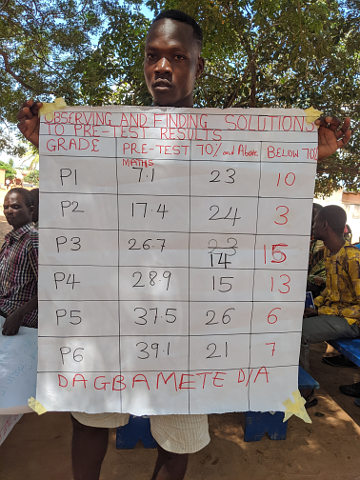 OBSERVING AND FINDING SOLUTIONS
TO PRE-TEST RESULTS
GRADE PRE-TEST MATHS 70% and Above BELOW 70%
P1 7.1 23 10
P2 17.4 24 3
P3 26.7 23 14 15
P4 28.9 15 13
P5 37.5 26 6
P6 39.1 21 7
DAGBAMETE D/A